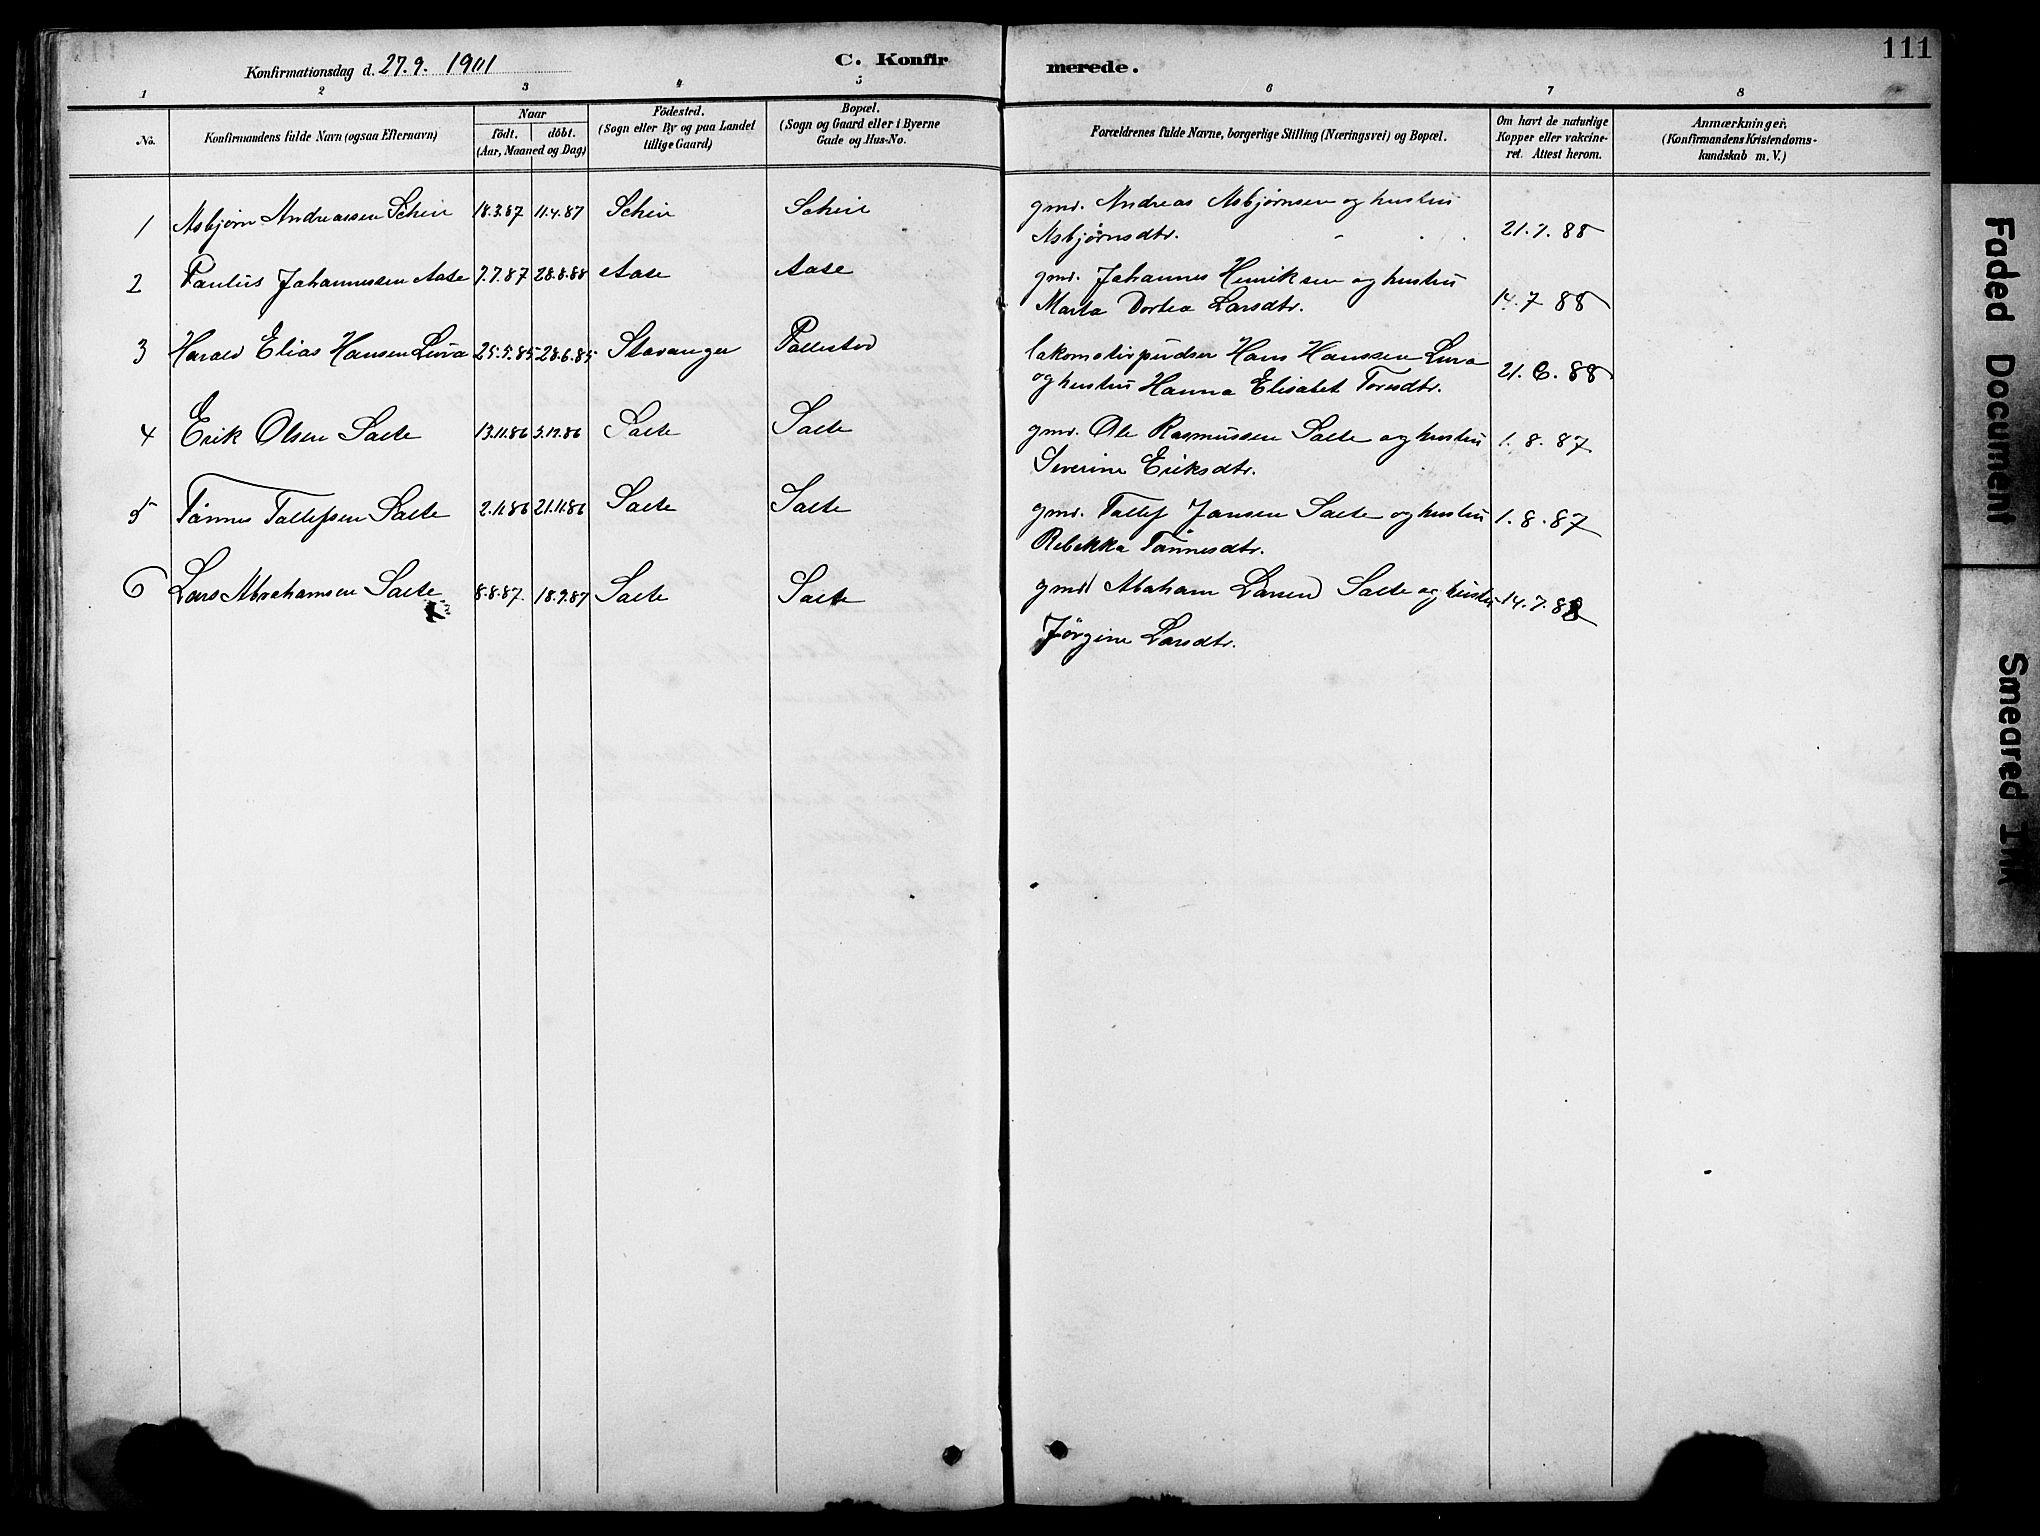 111
Konfirmationsdag d. 27.9. 1901
C. Konfirmerede.
1 2 3 4 5 6 7 8
No.
Konfirmandens fulde Navn (ogsaa Efternavn)
Naar
født. døbt.
(Aar, Maaned og Dag)
Födested.
(Sogn eller By og paa Landet
tillige Gaard)
Bopæl.
(Sogn og Gaard eller i Byerne
Gade og Hus-No.
Forældrenes fulde Navne, borgerlige Stilling (Næringsvei) og Bopæl.
Om havt de naturlige
Kopper eller vakcine-
ret. Attest herom.
Anmærkninger,
(Konfirmandens Kristendoms-
kundskab m. V.)
1 Asbjørn Andreassen Scheie 18.3.87 11.4.87 Scheie Scheie gmd. Andreas Asbjørnsen og hustru
Asbjørnsdtr. 21.7.88
2 Paulus Johannessen Aase 7.7.87 28.8.88 Aase Aase gmd. Johannes Henriksen og hustru
Marta Dortea Larsdtr. 14.7 88
3 Harald Elias Hansen Lura 25.5.85 28.6.85 Stavanger lokomotivpudser Hans Hanssen Lura
og hustru Hanna Elisabet Toresdtr. 21.6.88
4 Erik Olsen Salte 13.11.86 5.12.86 Salte Salte gmd. Ole Rasmussen Salte og hustru
Severine Eriksdtr. 1.8.87
5 Tønnes Tollefsen Salte 21.11.86 Salte Salte gmd. Tollef Jansen Salte og hustru
Rebekka Tønnesdtr. 1.8.87
6 Lars Abrahamsen Salte 8.8.87. 18.9.87 Salte Salte gmd Abraham Larsen Salte og hustru
Jørgine Larsdtr. 14.7.88
Faded Document
Smeared Ink